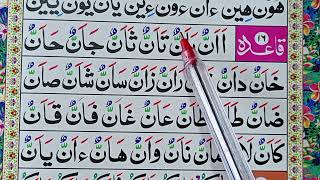 هون هين ءان ءون ءين يان يون يين
قاعده ١٦
اَانَّ تَانَّ ثَانَّ جَانَّ حَانَّ
خَانَّ دَانَّ رَانَّ زَانَّ سَانَّ شَانَّ صَانَّ
ضَانَّ طَانَّ ظَانَّ عَانَّ غَانَّ فَانَّ قَانَّ
كَانَّ مَانَّ نَانَّ وَانَّ هَانَّ ءَانَّ يَانَّ